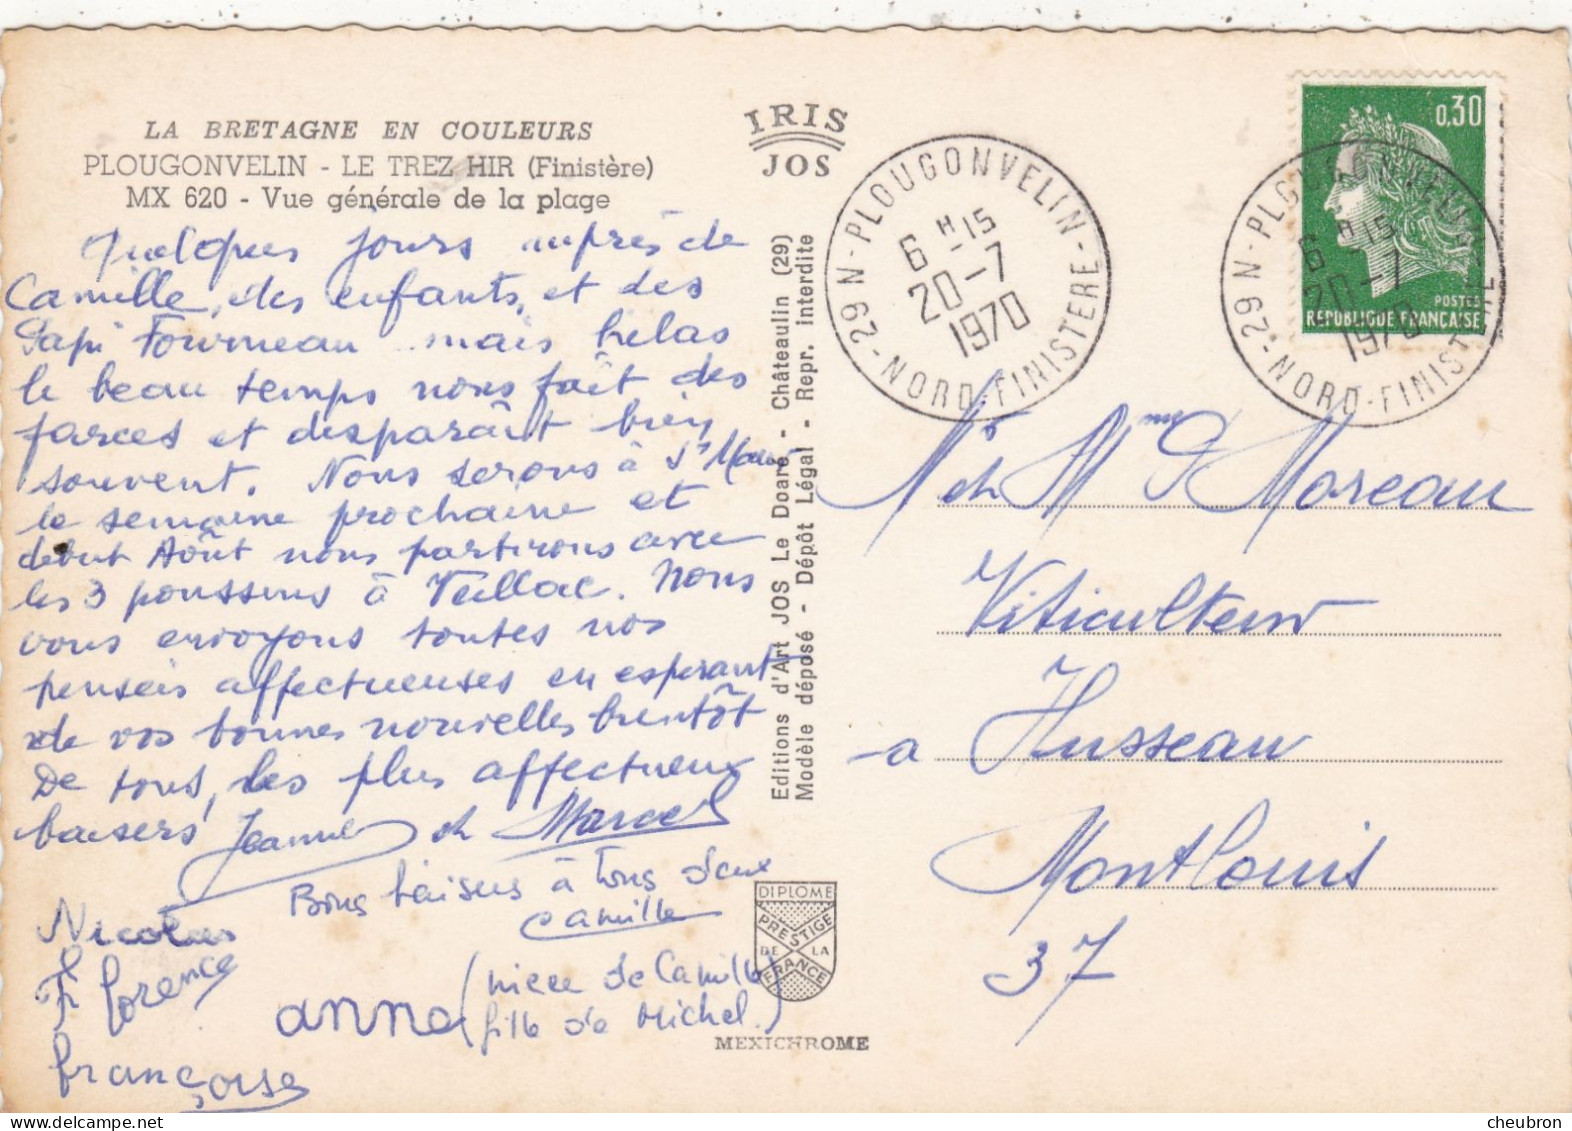 LA BRETAGNE EN COULEURS
PLOUGONVELIN - LE TREZ HIR (Finistère)
MX 620 - Vue générale de la plage
Quelques jours auprès de
Camille, des enfants, et des
Papi Fourneau mais helas
le beau temps nous fait des
farces et disparaît bien
souvent. Nous serons à St Maur
la semaine prochaine et
debut Août nous partirons avec
les 3 poussins à Vaillac. Nous
vous envoyons toutes nos
pensées affectueuses en esperant
de vos bonnes nouvelles bientôt
De tous, les plus affectueux
baisers Jeanne et Marcel
Bons baisers à tous deux
Camille
Nicolas
Florence
anna (niece de Camille
fille de Michel.)
françoise
IRIS
JOS
Editions d'Art JOS Le Doaré - Châteaulin (29)
Modèle déposé - Dépôt Légal - Repr. interdite
DIPLOME
PRESTIGE
DE LA
FRANCE
MEXICHROME
29 N - PLOUGONVELIN - NORD-FINISTERE
6 H -15
20-7
1970
29 N - PLOUGONVELIN - NORD-FINISTERE
6 H -15
20-7
1970
0,30
POSTES
REPUBLIQUE FRANÇAISE
Mr et Mme Moreau
Viticulteur
à Husseau
Montlouis
37
cheubron